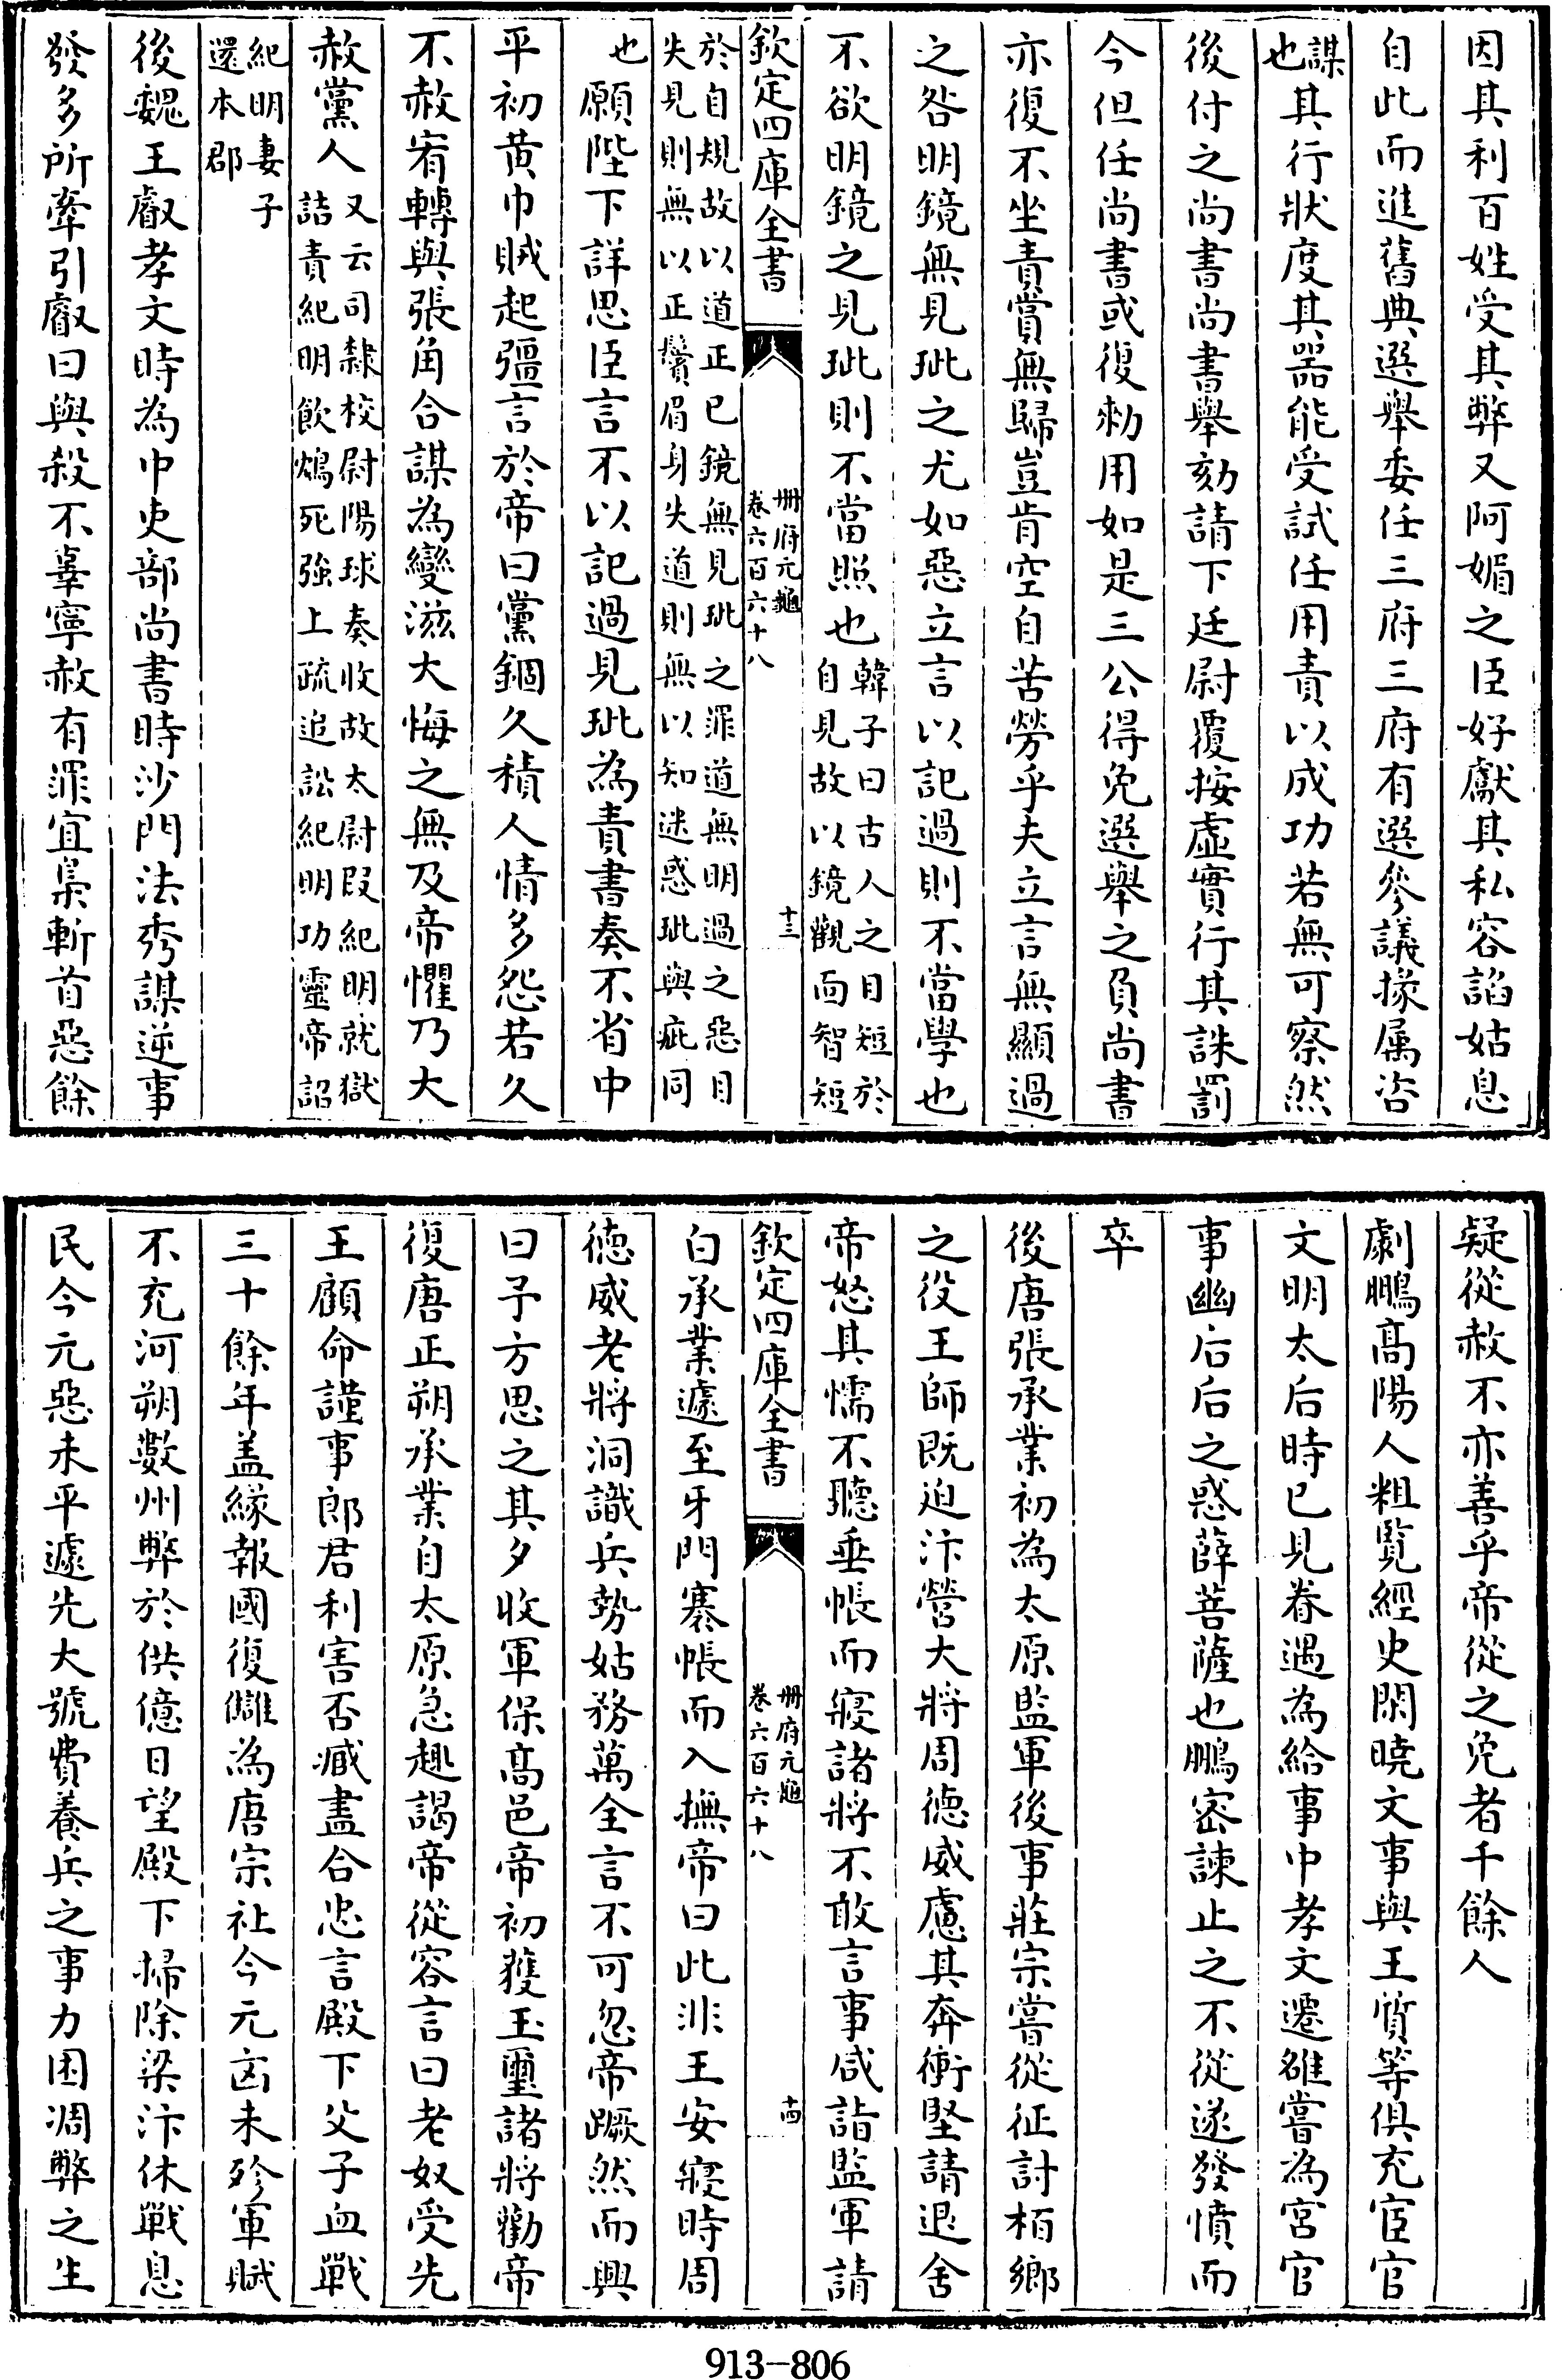 因其利百姓受其弊又阿媚之臣好獻其私容諂姑息
自此而進舊典選舉委任三府三府有選參議掾属咨
謀也其行狀度其器能受試任用責以成功若無可察然
後付之尚書尚書舉劾請下廷尉覆按虛實行其誅罰
今但任尚書或復勑用如是三公得免選舉之負尚書
亦復不坐責賞無歸豈肯空自苦勞乎夫立言無顯過
之咎明鏡無見玼之尤如惡立言以記過則不當學也
不欲明鏡之見玼則不當照也韓子曰古人之目短於自見故以鏡觀面智短
欽定四庫全書
冊府元龜
卷六百六十八
十三
於自規故以道正己鏡無見玼之罪道無明過之惡目失見則無以正鬢眉身失道則無以知迷惑玼與疵同
也願陛下詳思臣言不以記過見玼為責書奏不省中
平初黄巾賊起彊言於帝曰黨錮久積人情多怨若久
不赦宥轉與張角合謀為變滋大悔之無及帝懼乃大
赦黨人又云司隸校尉陽球奏收故太尉叚紀明就獄詰責紀明飲鴆死強上疏追訟紀明功靈帝詔
紀明妻子還本郡
後魏王叡孝文時為中吏部尚書時沙門法秀謀逆事
發多所牽引叡曰與殺不辜寧赦有罪宜梟斬首惡餘
疑從赦不亦善乎帝從之免者千餘人
劇鵬髙陽人粗覧經史閑曉文事與王質等俱充宦官
文明太后時已見眷遇為給事中孝文遷雒嘗為宮官
事幽后后之惑薛菩薩也鵬密諫止之不從遂發憤而
卒
後唐張承業初為太原監軍後事莊宗嘗從征討栢鄉
之役王師既迫汴營大將周德威慮其奔衝堅請退舍
帝怒其懦不聽垂帳而寢諸將不敢言事咸詣監軍請
欽定四庫全書
冊府元龜
卷六百六十八
十四
白承業遽至牙門褰帳而入撫帝曰此非王安寢時周
德威老將洞識兵勢姑務萬全言不可忽帝蹶然而興
曰予方思之其夕收軍保髙邑帝初獲玉璽諸將勸帝
復唐正朔承業自太原急趣謁帝從容言曰老奴受先
王顧命謹事郎君利害否臧盡合忠言殿下父子血戰
三十餘年盖緣報國復讎為唐宗社今元凶未殄軍賦
不充河朔數州弊於供億日望殿下掃除梁汴休戰息
民今元惡未平遽先大號費養兵之事力困凋弊之生
913-806